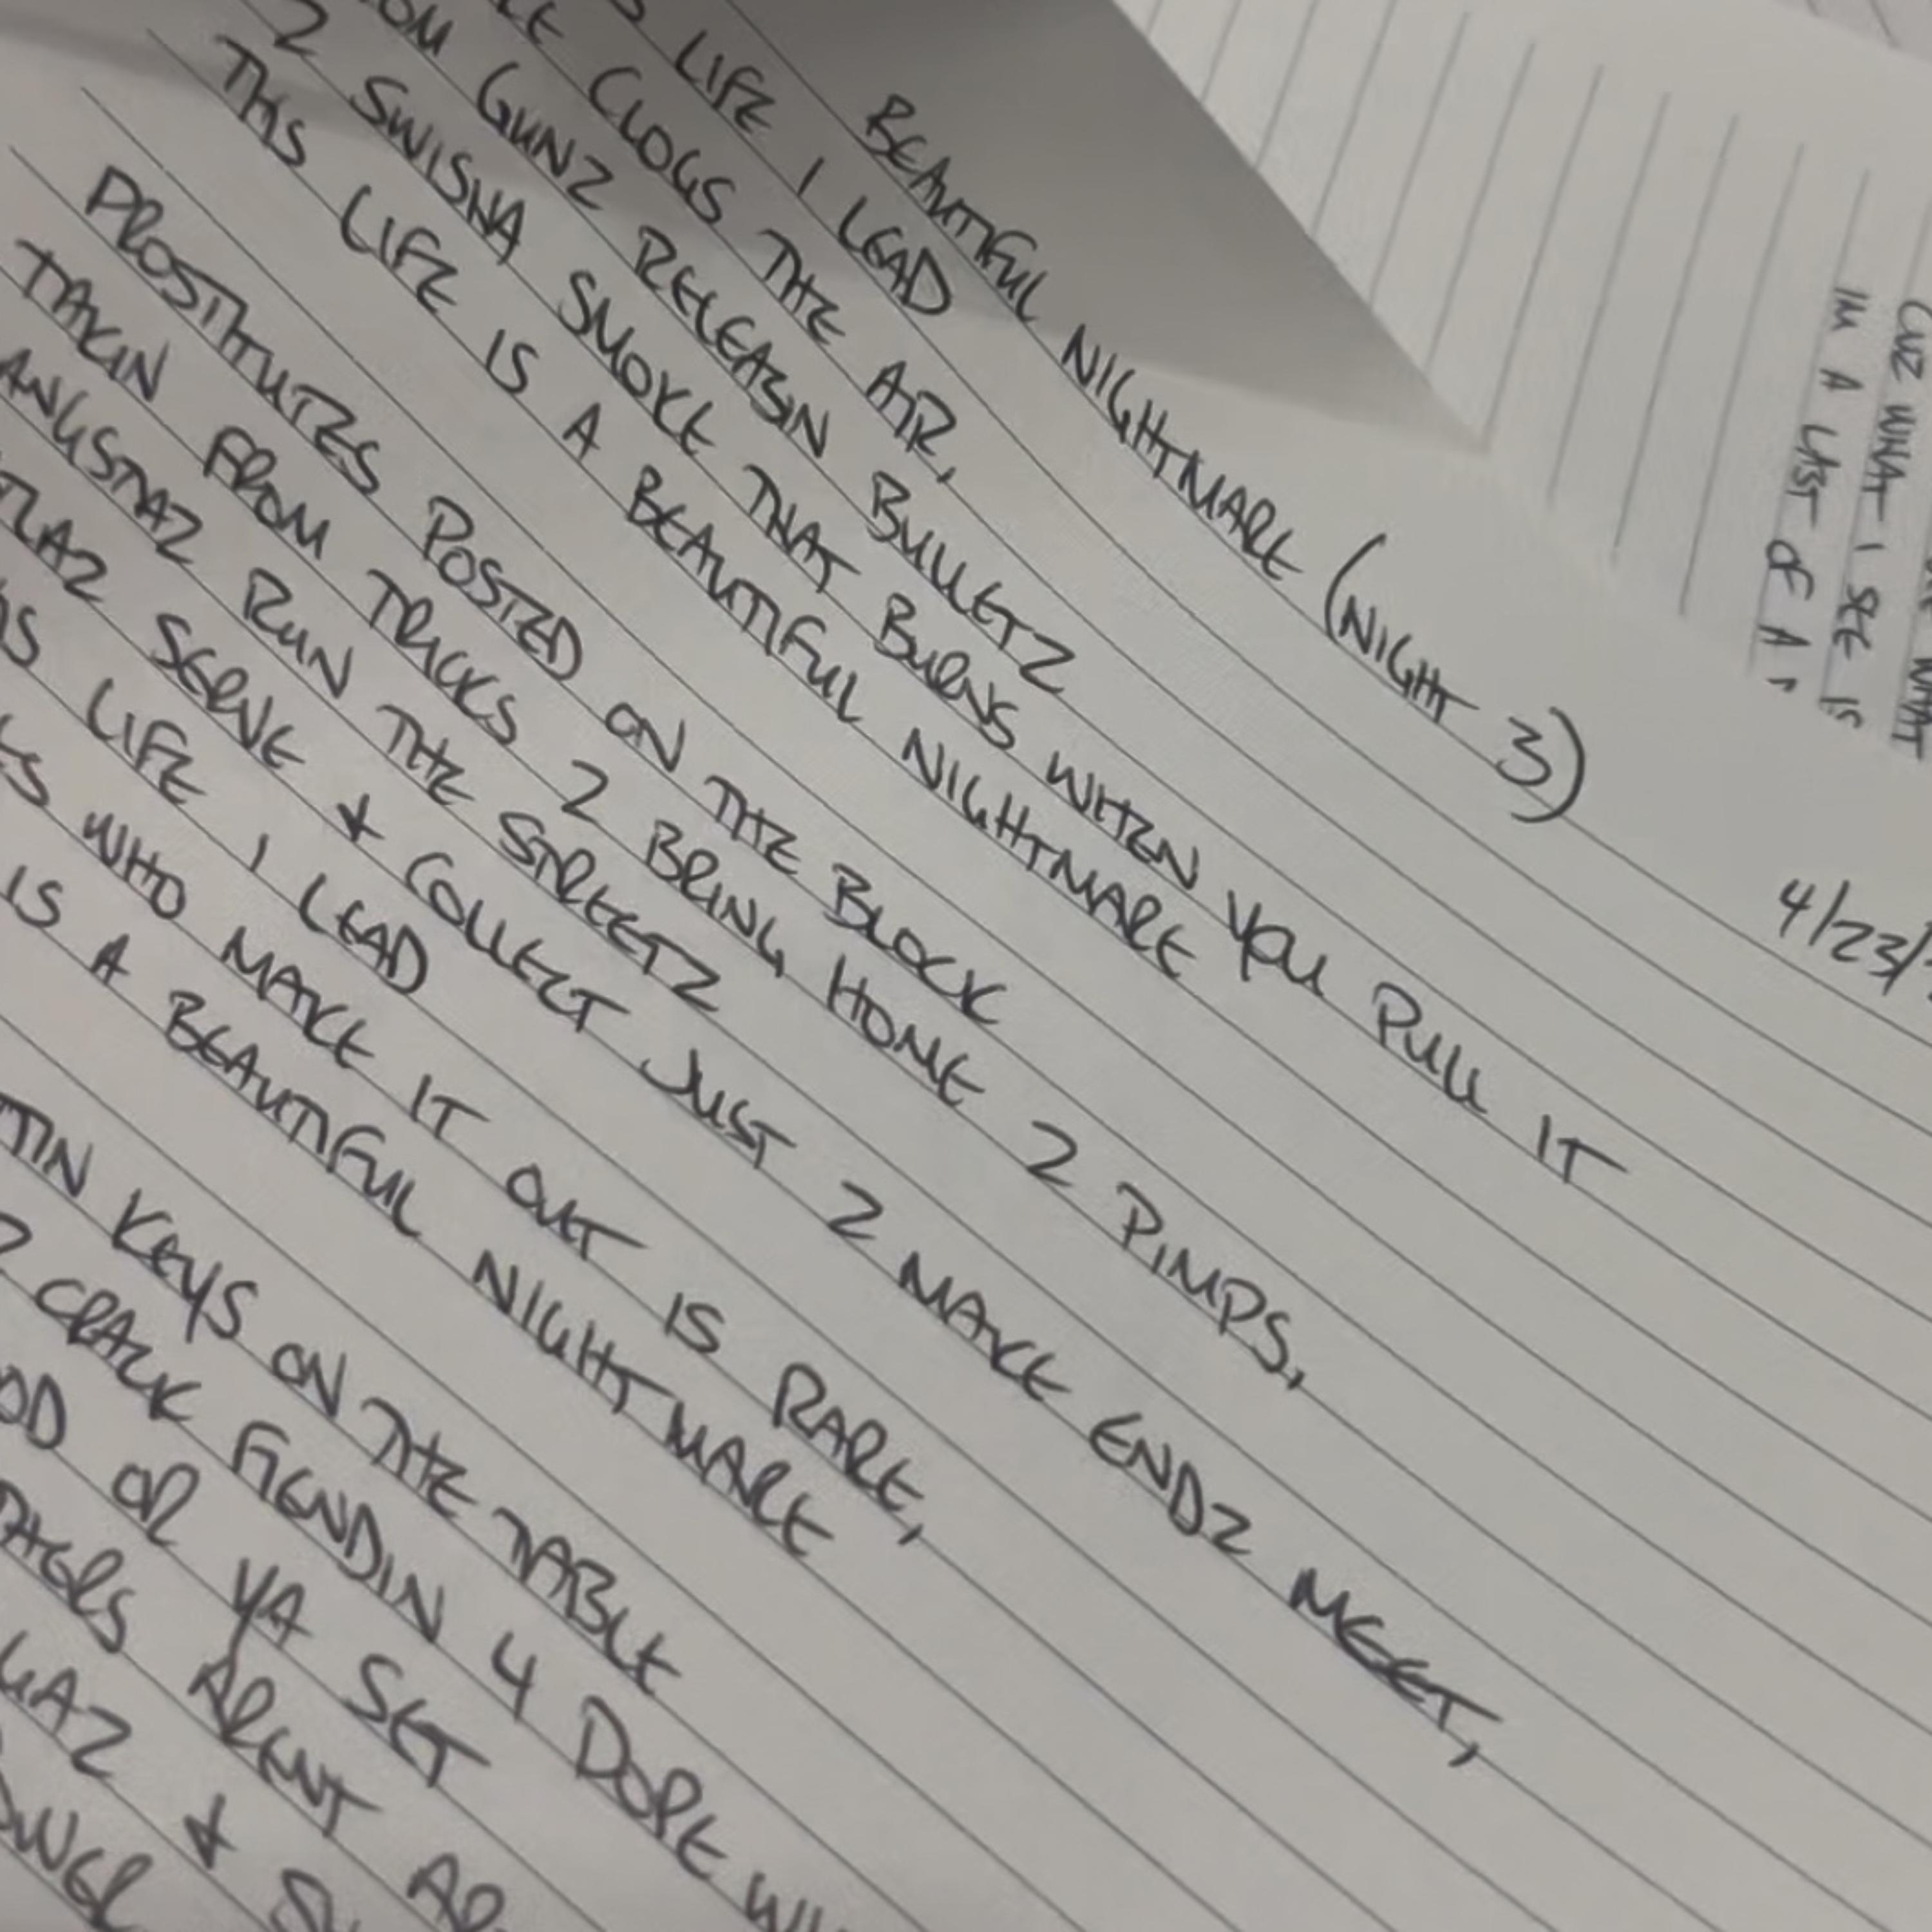 BEAUTIFUL NIGHTMARE (NIGHT 3)
4/23/
LIFE I LEAD
CLOGS THE AIR,
GUNZ RELEASIN BULLETZ
2 SWISHA SMOKE THAT BURNS WHEN YOU PULL IT
THIS LIFE IS A BEAUTIFUL NIGHTMARE
PROSTITUTES POSTED ON THE BLOCK
TAKIN FROM TRICKS 2 BRING HOME 2 PIMPS,
RUN THE STREETZ
SERVE & COLLECT JUST 2 MAKE ENDZ MEET,
LIFE I LEAD
WHO MAKE IT OUT IS RARE,
IS A BEAUTIFUL NIGHTMARE
KEYS ON THE TABLE
CRACK FIENDIN 4 DOPE
OR YA SET
ARENT
&
CUZ WHAT I SEE IS
IM A LAST OF A